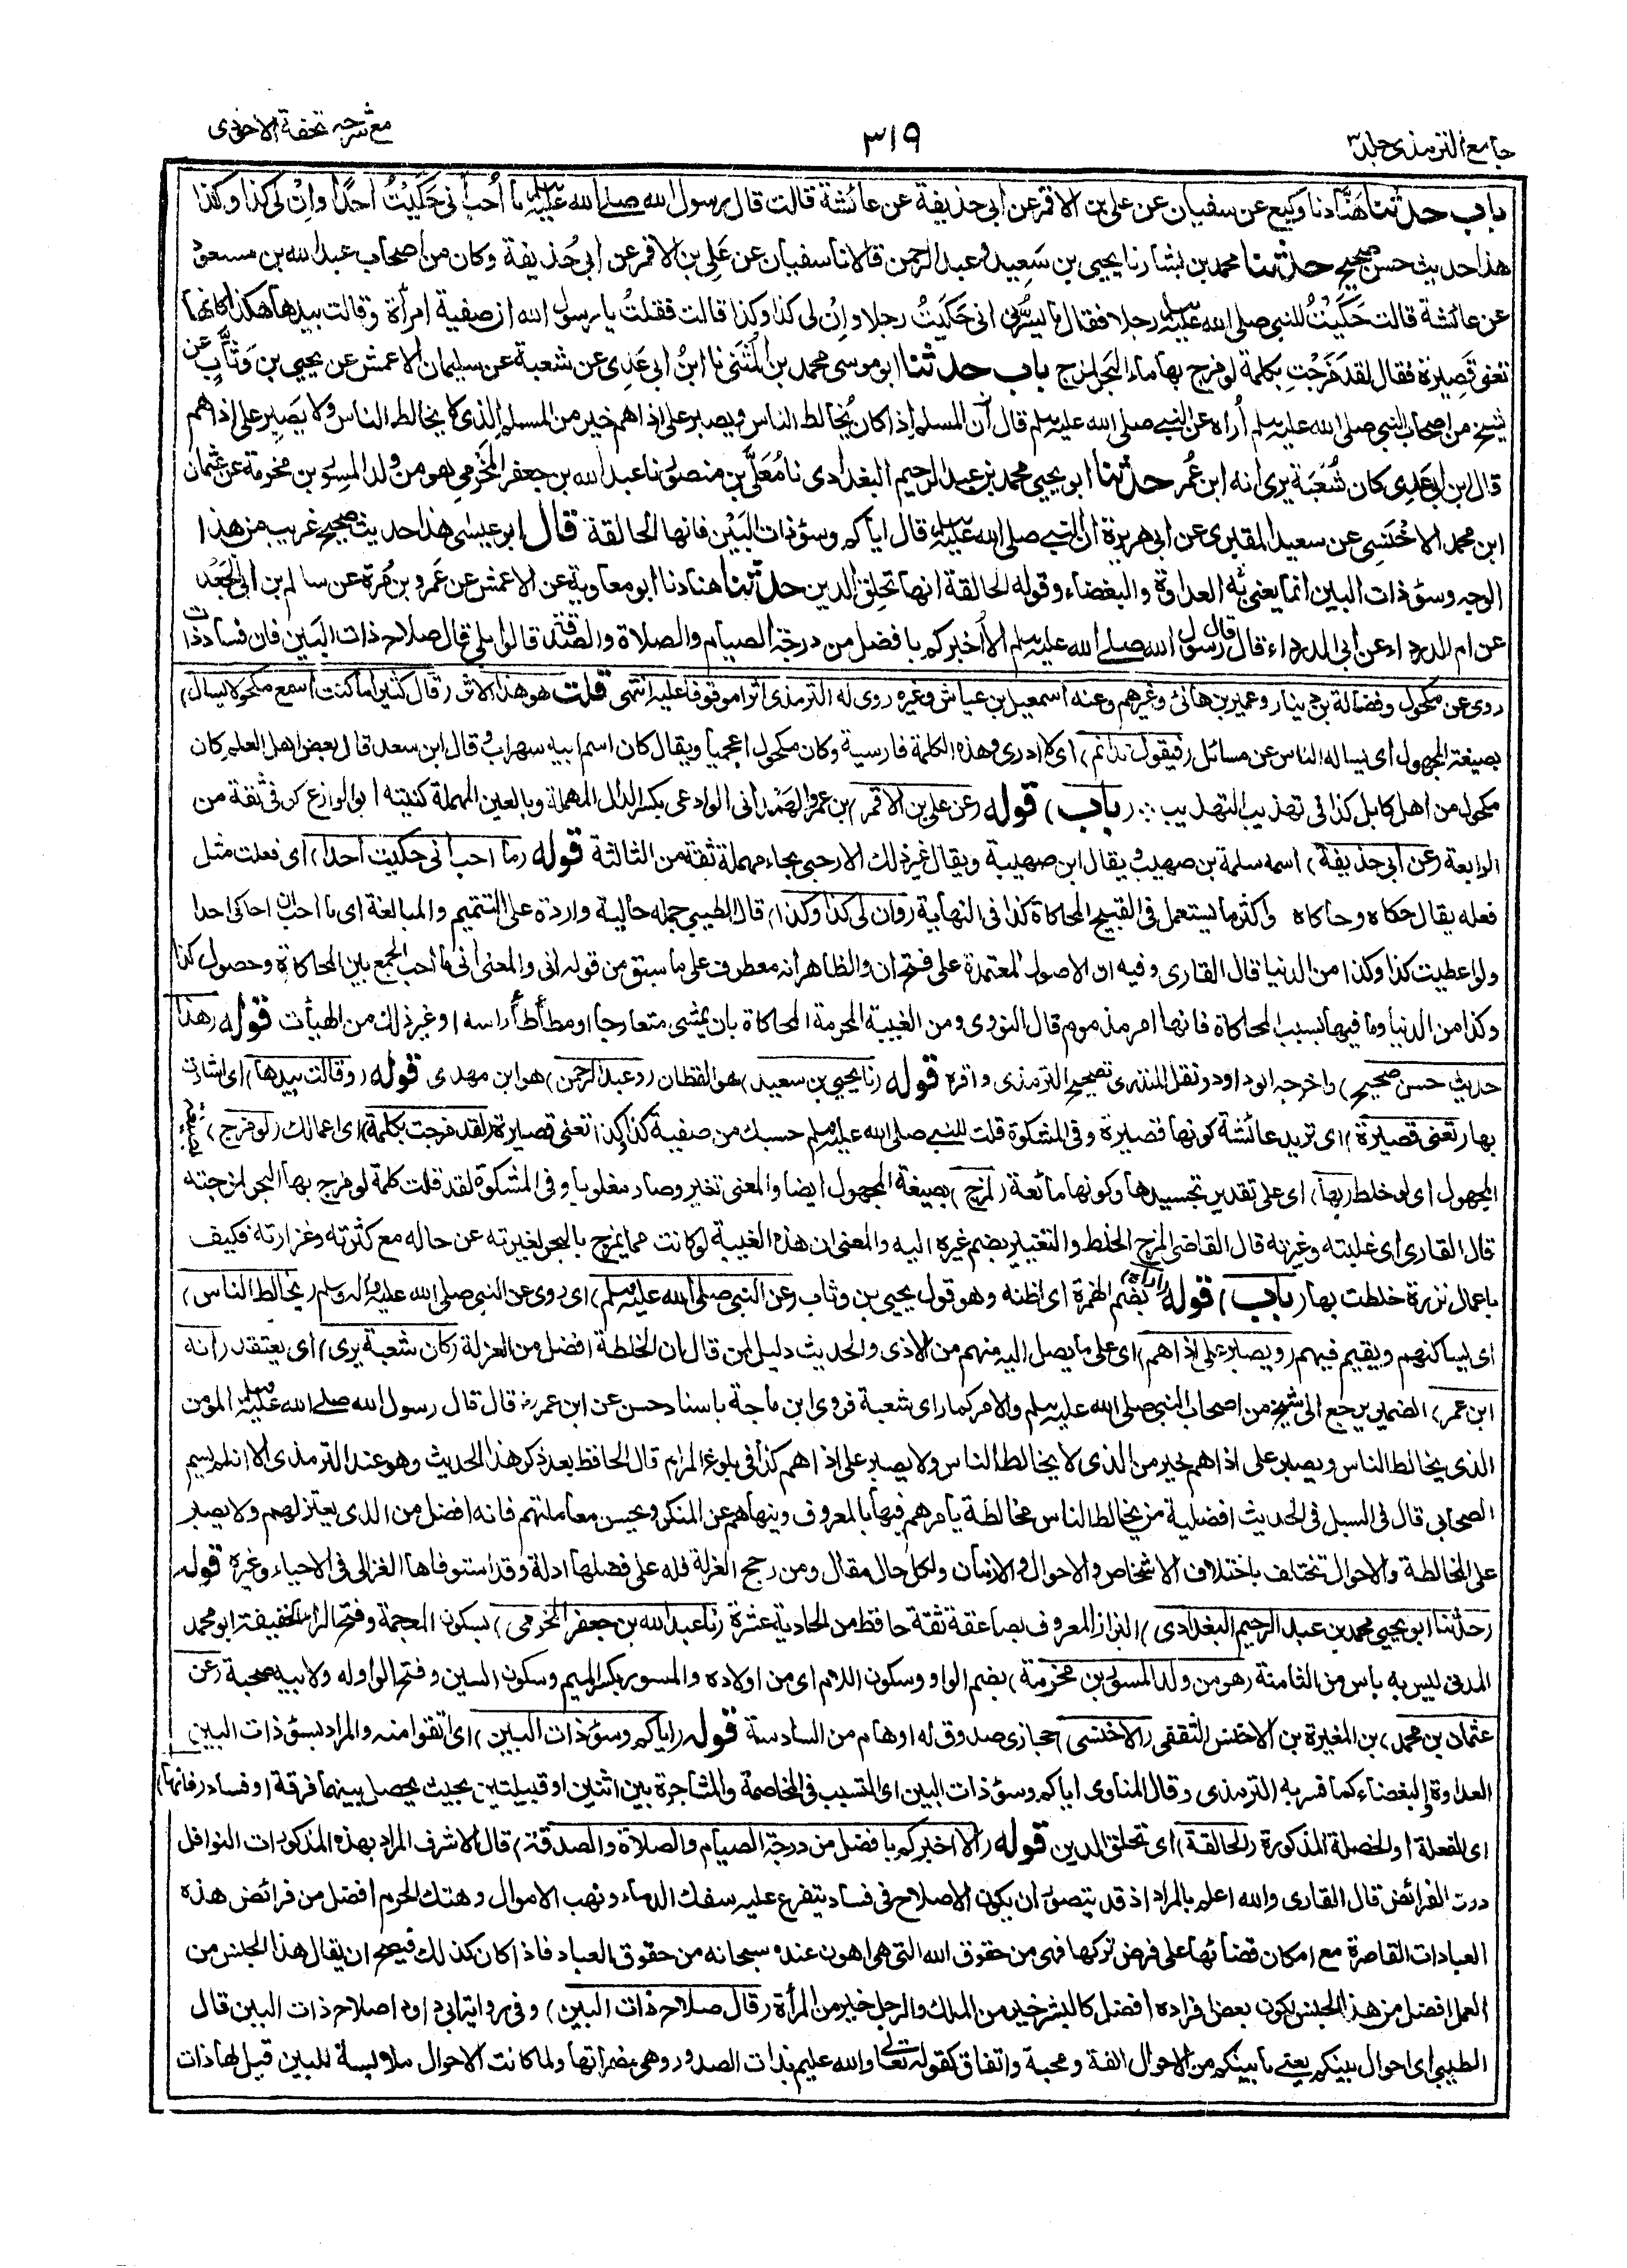 جامع الترمذى جلد٣
٣١٩
مع شرحه تحفة الاحوذى
باب حدثنا هَنَّادنا وكيع عن سفيان عن على بن الاقمر عن ابى حذيفة عن عائشة قالت قال رسول الله صلى الله عليه وسلم ما أُحب أنى حَكَيْتُ احدًا وانْ لى كذا وكذا
هذا حديث حسن صحيح حدثنا محمد بن بشار نا يحيى بن سَعِيد وعبد الرحمن قالا نا سفيان عن عَلِى بن الاقمر عن ابى حُذيفة وكان من اصحاب عبد الله بن مسعود
عن عائشة قالت حَكَيْتُ للنبى صلى الله عليه وسلم رجلا فقال ما يَسُرُّنى انى حَكَيتُ رجلا وانْ لى كذا وكذا قالت فقلتُ يا رسول الله ان صفية امرأة وقالت بيدها هكذا كانها
تعنى قَصِيرة فقال لقد مَزَجْتِ بكلمة لو مزج بها ماء البَحر لمزج باب حدثنا ابو موسى محمد بن المُثَنى نا ابنُ ابى عَدِى عن شعبة عن سليمان الاعمش عن يحيى بن وَثَّابٍ عن
شيخ من اصحاب النبى صلى الله عليه وسلم أُراه عن النبى صلى الله عليه وسلم قال أن المسلم اذا كان يُخالط الناس ويصبر على اذاهم خير من المسلم الذى لا يخالط الناس ولا يَصبِر على اذاهم
قال ابن ابى عَدِى كان شُعْبَة يرى انه ابن عُمر حدثنا ابو يحيى محمد بن عبد الرحيم البغدادى نا مُعَلَّى بن منصور نا عبد الله بن جعفر المَخْرَمِى هو من ولد المِسور بن مخرمة عن عثمان
ابن محمد الاخْنَسِى عن سعيد المقبرى عن ابى هريرة ان النبى صلى الله عليه وسلم قال اياكم وسوء ذات البَيْن فانها الحالقة قال ابو عيسى هذا حديث صحيح غريب من هذا
الوجه وسوء ذات البين انما يعنى به العداوة والبغضاء وقوله الحالقة انها تحلِق الدين حدثنا هناد نا ابو معاوية عن الاعمش عن عَمرو بن مُرة عن سالم بن ابى الجَعْد
عن ام الدرداء عن ابى الدرداء قال قال رسول الله صلى الله عليه وسلم الا أُخبركم بافضل من درجة الصيام والصلاة والصدقة قالوا بلى قال صلاح ذات البَين فان فساد ذات
روى عن مكحول وفضالة بن دينار وعمير بن هانئ وغيرهم وعنه اسمعيل بن عياش وغيره روى له الترمذى اثرا موقوفا عليه انتهى قلت هو هذا الاثر (قال كثيرا ما كنت اسمع مكحولا يسال)
بصيغة المجهول اى يساله الناس عن مسائل (فيقول ندانم) اى لا ادرى وهذه الكلمة فارسية وكان مكحول اعجميا ويقال كان اسم ابيه سهراب وقال ابن سعد قال بعض اهل العلم كان
مكحول من اهل كابل كذا فى تهذيب التهذيب (باب) قوله (عن على بن الاقمر) بن عمرو الهَمْدانى الوادعى بكسر الدال المهملة وبالعين المهملة كنيته ابو الوازع كوفى ثقة من
الرابعة (عن ابى حذيفة) اسمه سلمة بن صهيب ويقال ابن صهيبة ويقال غير ذلك الارحبى بحاء مهملة ثقة من الثالثة قوله (ما احب أنى حكيت احدا) اى فعلت مثل
فعله يقال حكاه وحاكاه واكثر ما يستعمل فى القبيح المحاكاة كذا فى النهاية (وان لى كذا وكذا) قال الطيبى جملة حالية واردة على التتميم والمبالغة اى ما احب ان احاكى احدا
ولو اعطيت كذا وكذا من الدنيا قال القارى وفيه ان الاصول المعتمدة على فتح ان والظاهر انه معطوف على ما سبق من قوله انى والمعنى انى ما احب الجمع بين المحاكاة وحصول كذا
وكذا من الدنيا وما فيها بسبب المحاكاة فانها امر مذموم قال النووى ومن الغيبة المحرمة المحاكاة بان يمشى متعارجا او مطأطأ راسه او غير ذلك من الهيأت قوله (هذا
حديث حسن صحيح) واخرجه ابو داود ونقل المنذرى تصحيح الترمذى واقره قوله (نا يحيى بن سعيد) هو القطان (وعبد الرحمن) هو ابن مهدى قوله (وقالت بيدها) اى اشارت
بها (تعنى قصيرة) اى تريد عائشة كونها قصيرة وفى المشكوة قلت للنبى صلى الله عليه وسلم حسبك من صفية كذا وكذا تعنى قصيرة (لقد مزجت بكلمة) اى اعمالك (لو مزج) بصيغة
المجهول اى لو خلط (بها) اى على تقدير تجسيدها وكونها مائعة (لمزج) بصيغة المجهول ايضا والمعنى تغير وصار مغلوبا وفى المشكوة لقد قلت كلمة لو مزج بها البحر لمزجته
قال القارى اى غلبته وغيرته قال القاضى المزج الخلط والتغيير بضم غيره اليه والمعنى ان هذه الغيبة لو كانت مما يمزج بالبحر لغيرته عن حاله مع كثرته وغزارته فكيف
باعمال نزرة خلطت بها (باب) قوله (اراه) بضم الهمزة اى اظنه وهو قول يحيى بن وثاب (عن النبى صلى الله عليه وسلم) اى روى عن النبى صلى الله عليه واله وسلم (يخالط الناس)
اى يساكنهم ويقيم فيهم (ويصبر على اذاهم) اى على ما يصل اليه منهم من الاذى والحديث دليل لمن قال ان الخلطة افضل من العزلة (كان شعبة يرى) اى يعتقد (انه
ابن عمر) الضمير يرجع الى شيخ من اصحاب النبى صلى الله عليه وسلم والامر كما راى شعبة فروى ابن ماجة باسناد حسن عن ابن عمر رض قال قال رسول الله صلى الله عليه وسلم المؤمن
الذى يخالط الناس ويصبر على اذاهم خير من الذى لا يخالط الناس ولا يصبر على اذاهم كذا فى بلوغ المرام قال الحافظ بعد ذكر هذا الحديث وهو عند الترمذى الا انه لم يسم
الصحابى قال فى السبل فى الحديث افضلية من يخالط الناس مخالطة يأمرهم فيها بالمعروف وينهاهم عن المنكر ويحسن معاملتهم فانه افضل من الذى يعتزلهم ولا يصبر
على المخالطة والاحوال تختلف باختلاف الاشخاص والاحوال والازمان ولكل حال مقال ومن رجح العزلة فله على فضلها ادلة وقد استوفاها الغزالى فى الاحياء وغيره قوله
(حدثنا ابو يحيى محمد بن عبد الرحيم البغدادى) البزاز المعروف بصاعقة ثقة حافظ من الحادية عشرة (نا عبد الله بن جعفر المخرمى) بسكون المعجمة وفتح الراء الخفيفة ابو محمد
المدنى ليس به باس من الثامنة (هو من ولد المسور بن مخرمة) بضم الواو وسكون اللام اى من اولاده والمسور بكسر الميم وسكون السين وفتح الواو له ولابيه صحبة (عن
عثمان بن محمد) بن المغيرة بن الاخنس الثقفى (الاخنسى) حجازى صدوق له اوهام من السادسة قوله (اياكم وسوء ذات البين) اى اتقوا منه والمراد بسوء ذات البين
العداوة والبغضاء كما فسر به الترمذى وقال المناوى اياكم وسوء ذات البين اى التسبب فى المخاصمة والمشاجرة بين اثنين او قبيلتين بحيث يحصل بينهما فرقة او فساد (فانها)
اى الفعلة او الخصلة المذكورة (الحالقة) اى تحلق الدين قوله (الا اخبركم بافضل من درجة الصيام والصلاة والصدقة) قال الاشرف المراد بهذه المذكورات النوافل
دون الفرائض قال القارى والله اعلم بالمراد اذ قد يتصور ان يكون الاصلاح فى فساد يتفرع عليه سفك الدماء ونهب الاموال وهتك الحرم افضل من فرائض هذه
العبادات القاصرة مع امكان قضائها على فرض تركها فهى من حقوق الله التى هى اهون عنده سبحانه من حقوق العباد فاذا كان كذلك فيصح ان يقال هذا الجنس من
العمل افضل من هذا الجنس لكون بعض افراده افضل كالبشر خير من الملك والرجل خير من المرأة (قال صلاح ذات البين) وفى رواية ابى داود اصلاح ذات البين قال
الطيبى اى احوال بينكم يعنى ما بينكم من الاحوال الفة ومحبة واتفاق كقوله تعالى والله عليم بذات الصدور وهى مضمراتها ولما كانت الاحوال ملابسة للبين قيل لها ذات